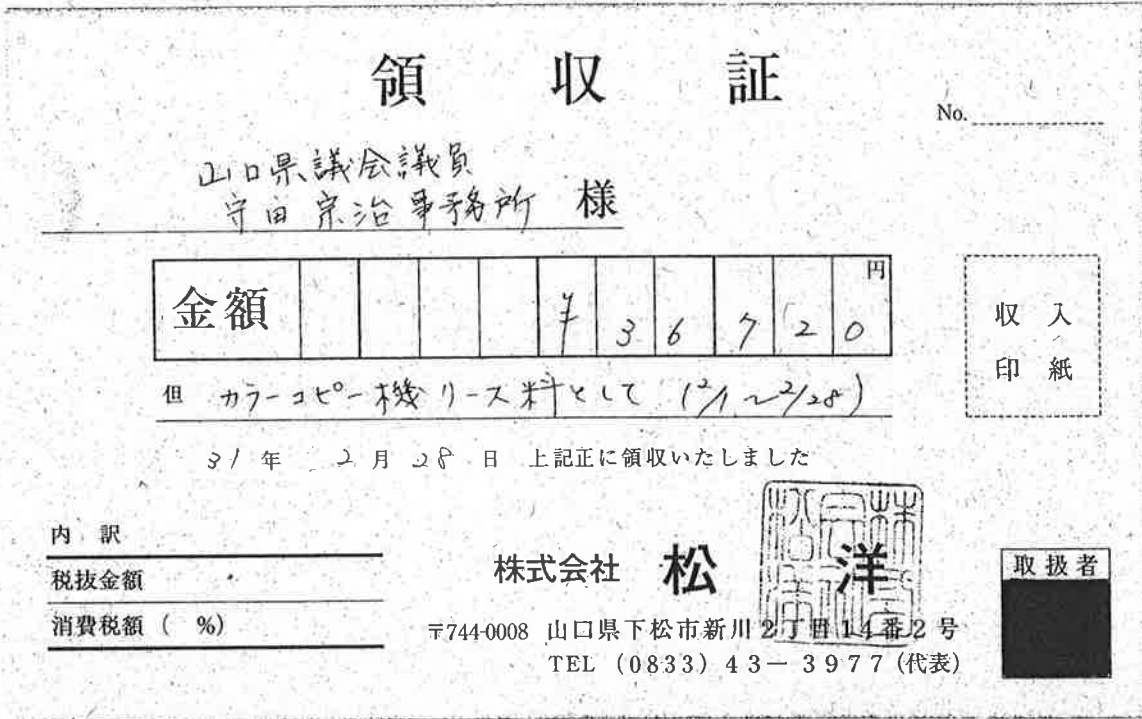 領収証
No.
山口県議会議員
守田宗治事務所 様
金額 ¥36720円
収入
印紙
但 カラーコピー機リース料として (2/1~2/28)
31年 2月28日 上記正に領収いたしました
内訳
税抜金額
消費税額( %)
株式会社 松洋
取扱者
〒744-0008 山口県下松市新川2丁目14番2号
TEL (0833) 43-3977 (代表)